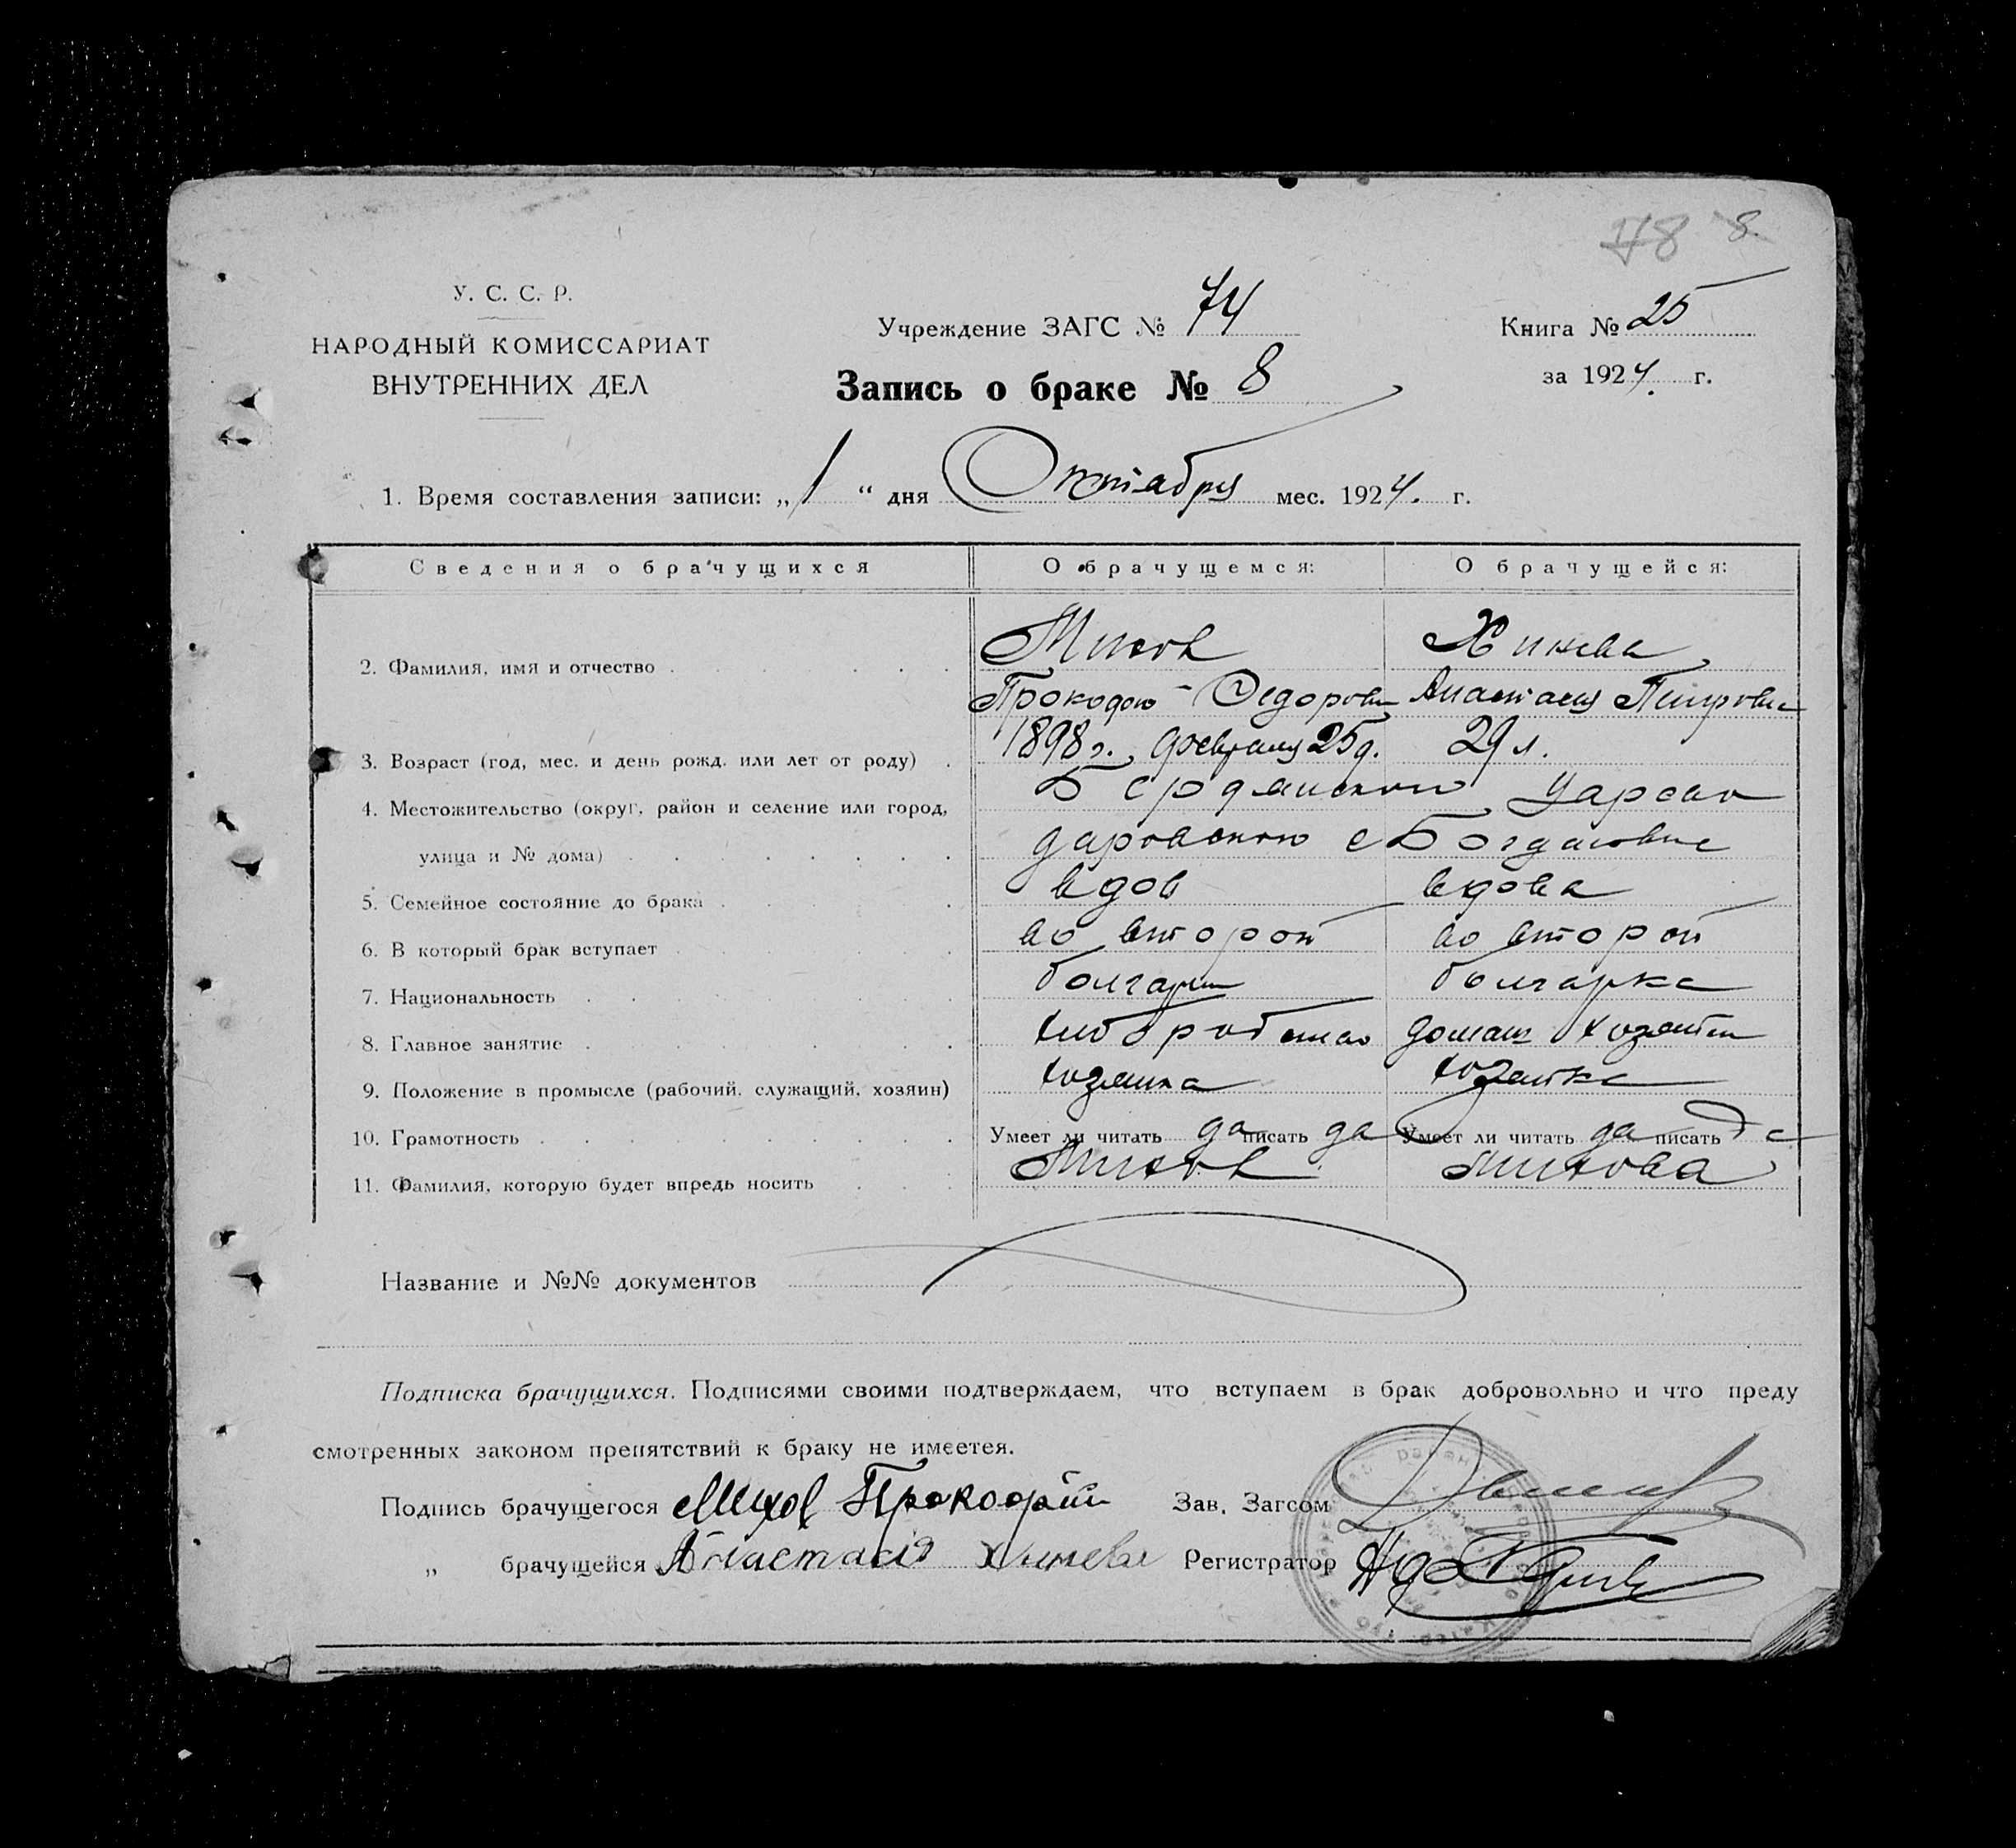 78 8.
У. С. С. Р.
НАРОДНЫЙ КОМИССАРИАТ
ВНУТРЕННИХ ДЕЛ
Учреждение ЗАГС № 74
Книга № 25
Запись о браке № 8
за 1924. г.
1. Время составления записи: „ 1 “ дня Октября мес. 1924. г.
Сведения о брачущихся О брачущемся: О брачущейся:
2. Фамилия, имя и отчество Михов Хинева
Прокофий Федорович Анастасия Петровна
3. Возраст (год, мес. и день рожд. или лет от роду) 1898 г. февраля 25 д. 29 л.
4. Местожительство (округ, район и селение или город, Бердянского Царево
улица и № дома) даровского с Богдановке
5. Семейное состояние до брака вдов вдова
6. В который брак вступает во второй во второй
7. Национальность болгарин болгарка
8. Главное занятие домаш
9. Положение в промысле (рабочий, служащий, хозяин) хозяина хозяйка
10. Грамотность Умеет ли читать да писать да Умеет ли читать да писать да
11. Фамилия, которую будет впредь носить Михов Михова
Название и №№ документов
Подписка брачущихся. Подписями своими подтверждаем, что вступаем в брак добровольно и что преду
смотренных законом препятствий к браку не имеетея.
Подпись брачущегося Михов Прокофий Зав. Загсом
„ брачущейся Анастасiя Хинева Регистратор